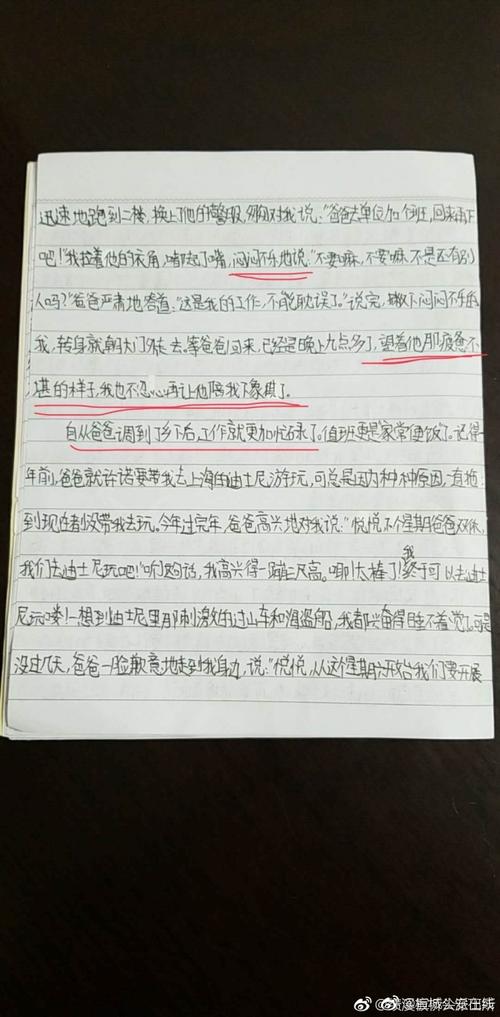 迅速地跑到二楼,换上了他的警服,匆匆对我说:"爸爸去单位加个班,回来再下
吧!"我拉着他的衣角,嘟起了嘴,闷闷不乐地说:"不要嘛,不要嘛,不是还有别
人吗?"爸爸严肃地答道:"这是我的工作,不能耽误了。"说完,撇下闷闷不乐的
我,转身就朝大门外走去。等爸爸回来,已经是晚上九点多了,望着他那疲惫不
堪的样子,我也不忍心再让他陪我下象棋了。
自从爸爸调到了乡下后,工作就更加忙碌了。值班更是家常便饭了。记得一
年前,爸爸就许诺要带我去上海的迪士尼游玩,可总是因为种种原因,一直拖
到现在都没带我去玩。今年过完年,爸爸高兴地对我说:"悦悦,下个星期爸爸双休,
我们去迪士尼玩吧!"听到这句话,我高兴得一蹦三尺高。"耶!太棒了!我终于可以去迪士
尼玩喽!一想到迪士尼里那刺激的过山车和海盗船,我都兴奋得睡不着觉。可是
没过几天,爸爸一脸歉意地走到我身边,说:"悦悦,从这个星期六开始我们要开展
公安在线